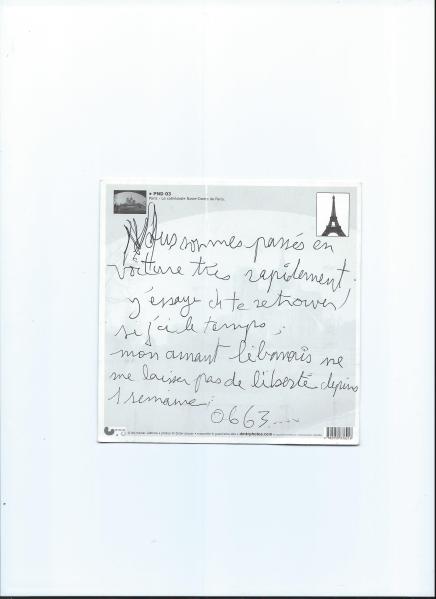 PND 03
Paris - La cathédrale Notre-Dame de Paris.
Nous sommes passés en
voiture très rapidement.
j'essaye de te retrouver
si j'ai le temps;
mon amant libanais ne
me laisser pas de liberté depuis
1 semaine;
0663....